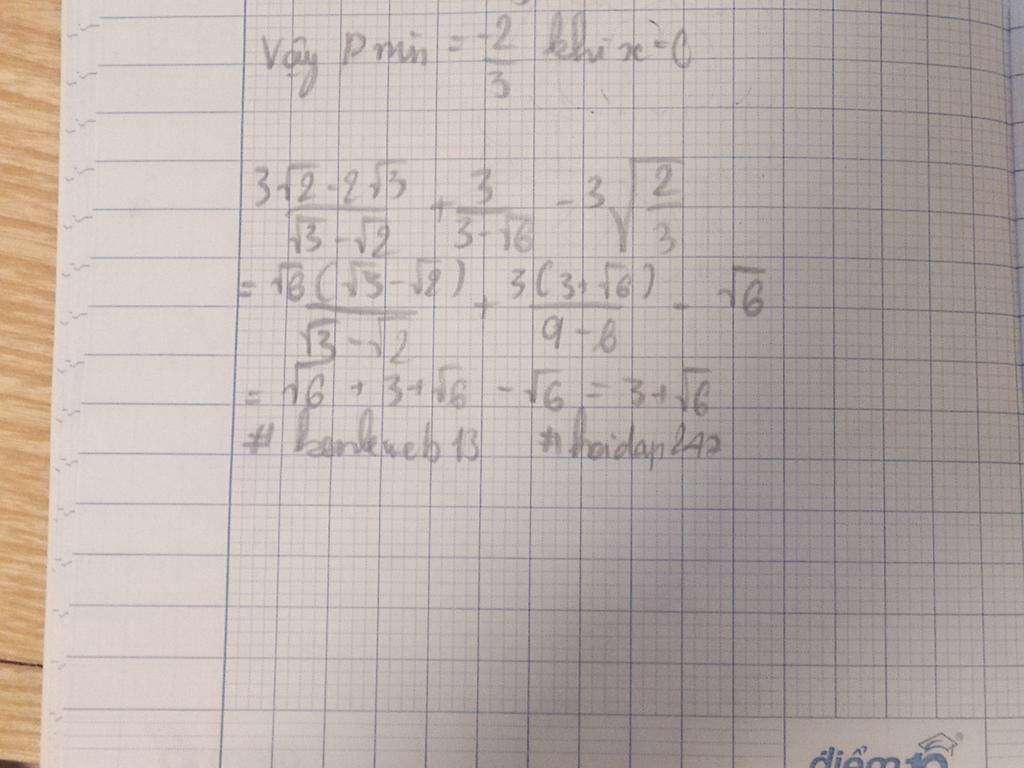 Vậy P min = -2/3 khi x = 0
3√2 - 2√3 / √3 - √2 + 3 / 3 - √6 - 3√2/3
= √6(√3 - √2) / √3 - √2 + 3(3 + √6) / 9 - 6 - √6
= √6 + 3 + √6 - √6 = 3 + √6
# 13 # hoidap247
điểm 10